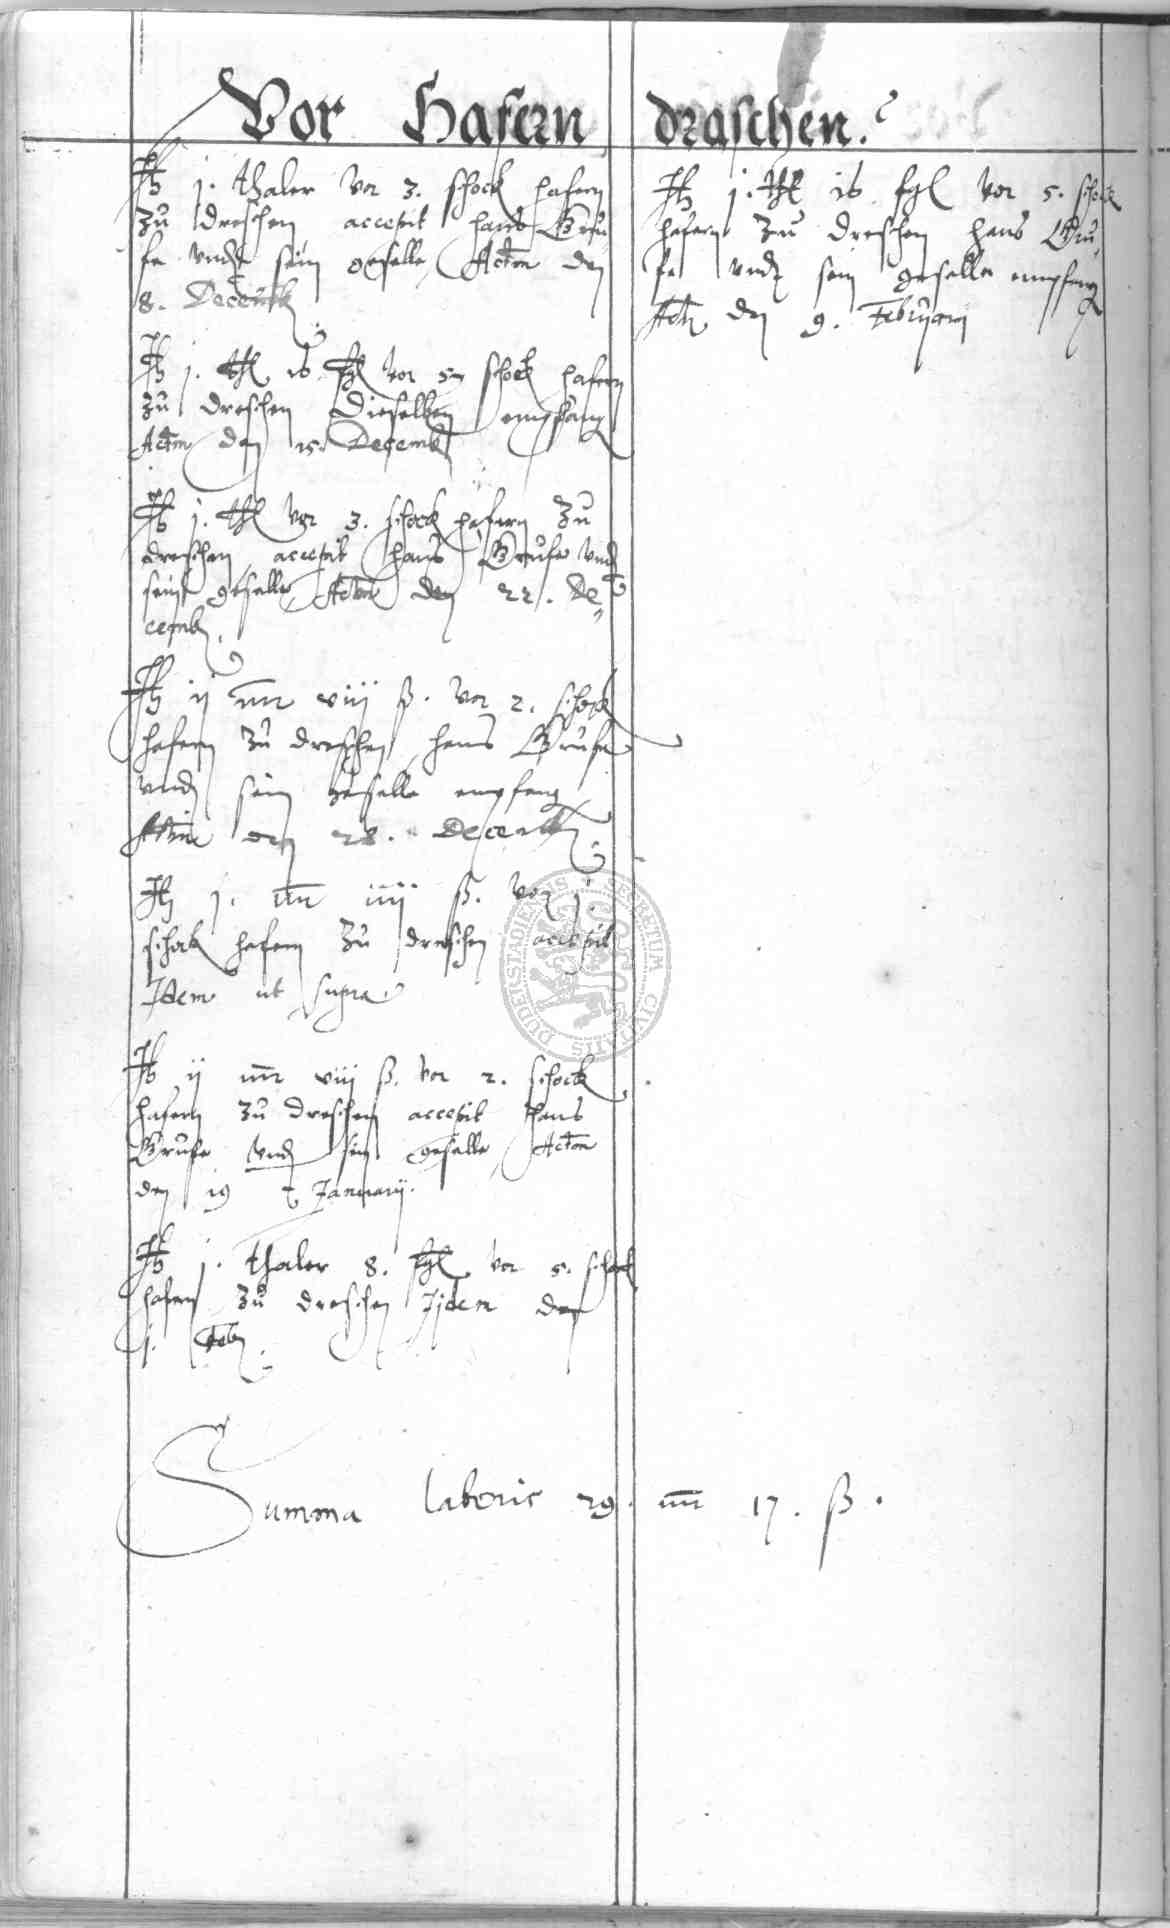 Vor Hafern draschen.
It j. thaler vor 3. schock hafern
zu dreschen accepit hans Gru
se vnd sein geselle Actm den
8. Decemb
It j. thl 16 sgl vor 5 schock hafern
zu dreschen Dieselben empfang
Actm den 15. Decemb
It j. thl vor 3. schock hafern zu
dreschen accepit hans Gruse vnd
sein geselle Actm den 22. De
cemb.
It ij mr viij ß. vor 2. schock
hafern zu dreschen hans Gruse
vnd sein geselle empfang
Actm den 28. Decemb
It j. mr iiij ß. vor j.
schock hafern zu dreschen accepit
Idem ut supra.
It ij mr viij ß. vor 2. schock
hafern zu dreschen accepit hans
Gruse vnd sein geselle Actm
den 19 t Januarij.
It j. thaler 8. sgl vor 5. schock
hafern zu dreschen Ijdem den
j. Feb.
It j. thl 16 sgl vor 5. schock
hafern zu dreschen hans Gru
se vnd sein geselle empfang
Actm den 9. Februarij
Summa laboris 29. mr 17. ß.
SECRETUM CIVITATIS DUDERSTADENSIS